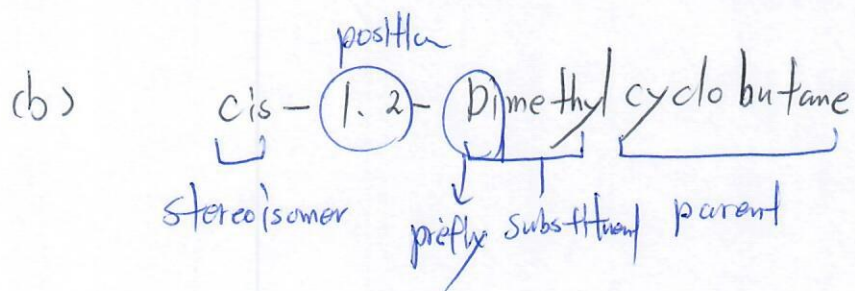 position
(b) cis - 1.2 - Dimethyl cyclobutane
stereoisomer prefix substituent parent